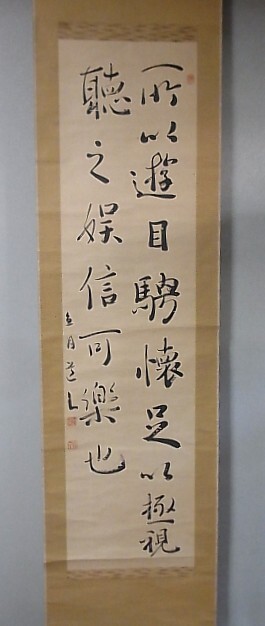 所以遊目騁懷足以極視
聽之娛信可樂也